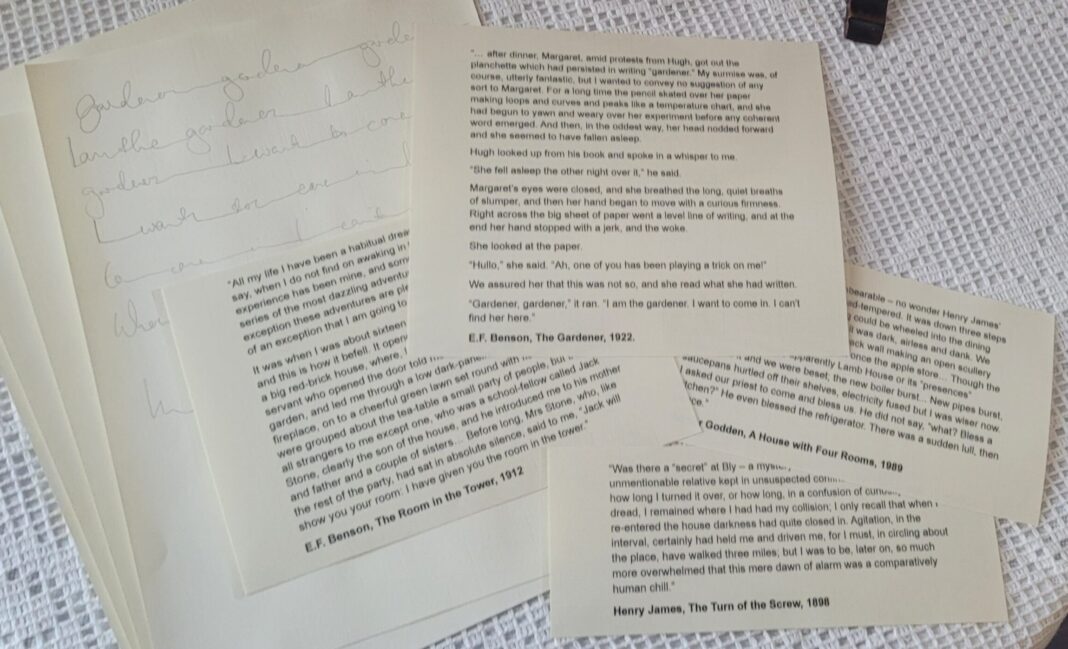 gardener gardener garde
I am the gardener I am the
gardener I want to come
I want to come in I
to come in I can't
Wher
"... after dinner, Margaret, amid protests from Hugh, got out the
planchette which had persisted in writing "gardener." My surmise was, of
course, utterly fantastic, but I wanted to convey no suggestion of any
sort to Margaret. For a long time the pencil skated over her paper
making loops and curves and peaks like a temperature chart, and she
had begun to yawn and weary over her experiment before any coherent
word emerged. And then, in the oddest way, her head nodded forward
and she seemed to have fallen asleep.
Hugh looked up from his book and spoke in a whisper to me.
"She fell asleep the other night over it," he said.
Margaret's eyes were closed, and she breathed the long, quiet breaths
of slumper, and then her hand began to move with a curious firmness.
Right across the big sheet of paper went a level line of writing, and at the
end her hand stopped with a jerk, and the woke.
She looked at the paper.
"Hullo," she said. "Ah, one of you has been playing a trick on me!"
We assured her that this was not so, and she read what she had written.
"Gardener, gardener," it ran. "I am the gardener. I want to come in. I can't
find her here."
E.F. Benson, The Gardener, 1922.
"All my life I have been a habitual drea
say, when I do not find on awaking in
experience has been mine, and som
series of the most dazzling adventu
exception these adventures are ple
of an exception that I am going to
It was when I was about sixteen
and this is how it befell. It open
a big red-brick house, where, I
servant who opened the door told m
garden, and led me through a low dark-pane
fireplace, on to a cheerful green lawn set round with
were grouped about the tea-table a small party of people, but
all strangers to me except one, who was a school-fellow called Jack
Stone, clearly the son of the house, and he introduced me to his mother
and father and a couple of sisters... Before long, Mrs Stone, who, like
the rest of the party, had sat in absolute silence, said to me, "Jack will
show you your room: I have given you the room in the tower."
E.F. Benson, The Room in the Tower, 1912
bearable – no wonder Henry James'
ed-tempered. It was down three steps
could be wheeled into the dining
it was dark, airless and dank. We
ck wall making an open scullery
once the apple store... Though the
apparently Lamb House or its "presences"
and we were beset; the new boiler burst... New pipes burst,
saucepans hurtled off their shelves, electricity fused but I was wiser now.
I asked our priest to come and bless us. He did not say, "what? Bless a
tchen?" He even blessed the refrigerator. There was a sudden lull, then
ce."
r Godden, A House with Four Rooms, 1989
"Was there a "secret" at Bly – a myster
unmentionable relative kept in unsuspected con
how long I turned it over, or how long, in a confusion of
dread, I remained where I had had my collision; I only recall that when I
re-entered the house darkness had quite closed in. Agitation, in the
interval, certainly had held me and driven me, for I must, in circling about
the place, have walked three miles; but I was to be, later on, so much
more overwhelmed that this mere dawn of alarm was a comparatively
human chill."
Henry James, The Turn of the Screw, 1898